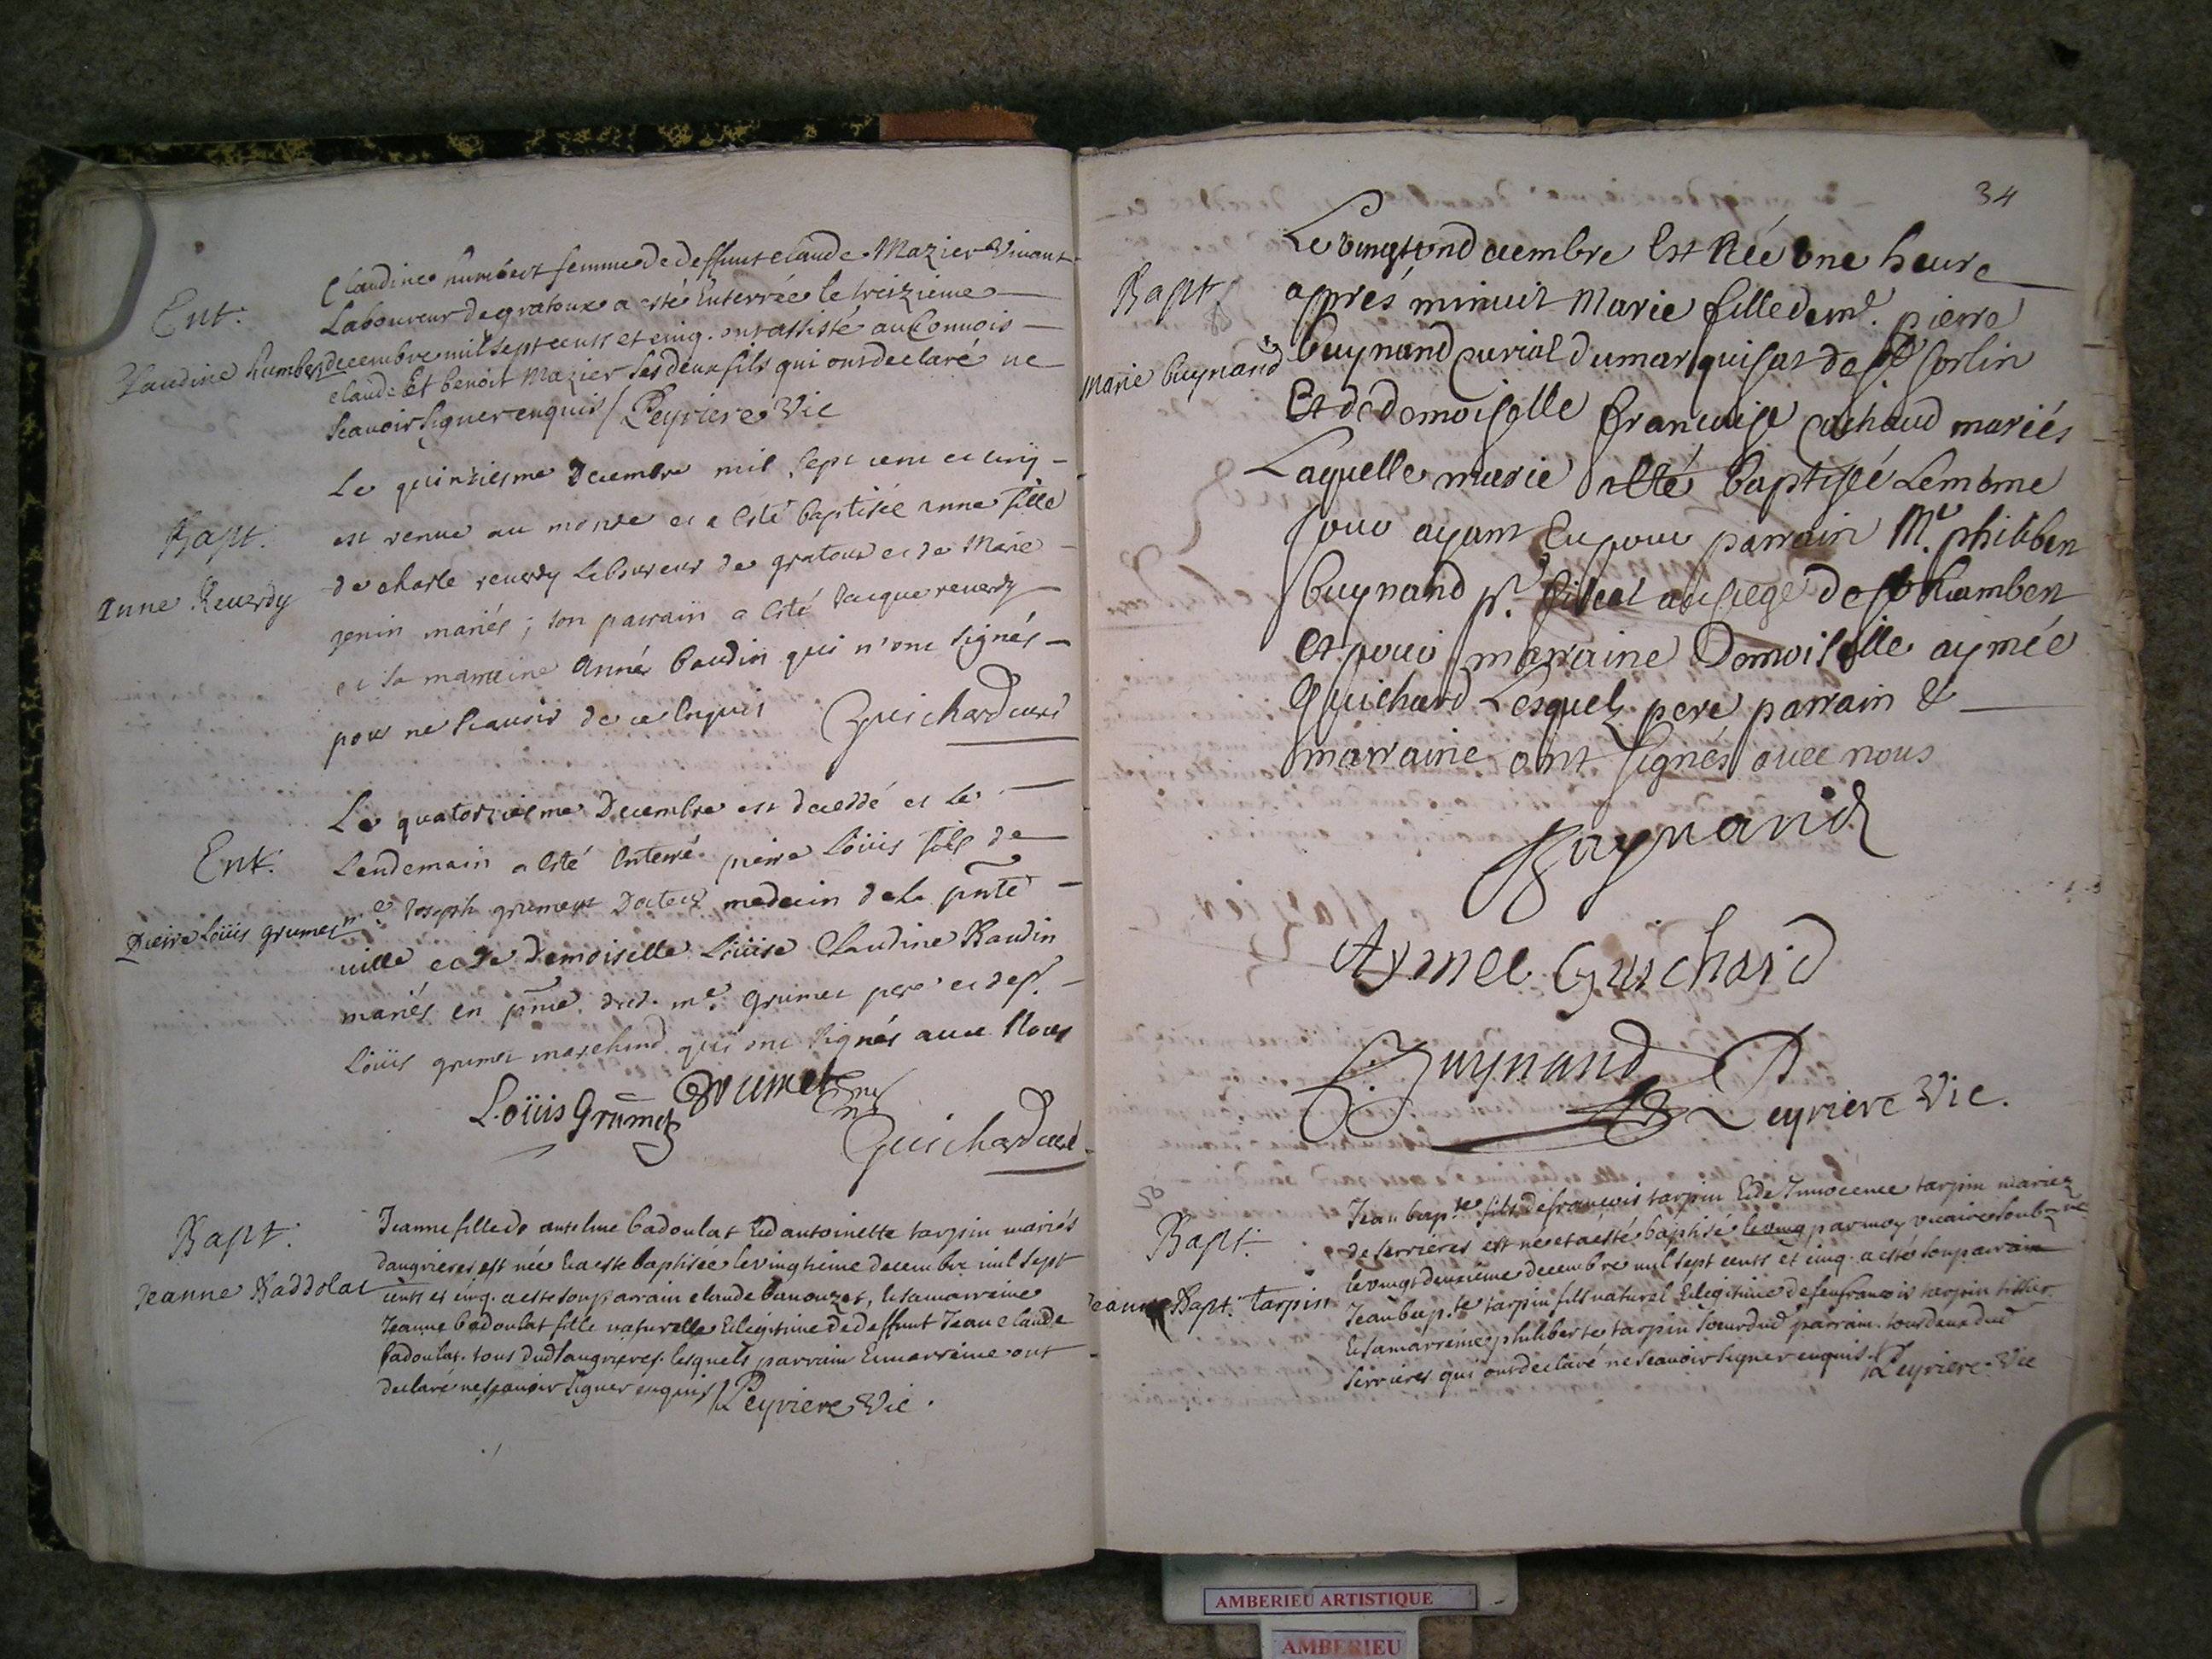 Ent.
Claudine humbert
Claudine humbert femme de deffunt claude Mazier Vivant
Laboureur de gratoux a esté Enterrée le treizieme
decembre mil sept cents et cinq. ont assisté au Convois
claude Et benoit Mazier ses deux fils qui ont declaré ne
scavoir signer enquis / Peyriere Vic
Bapt.
Anne Reverdy
Le quinziesme Decembre mil sept cent et cinq
est venue au monde et a esté baptisée anne fille
de charle reverdy Laboureur de gratoux et de Marie
genin mariés ; son parrain a esté Jacque reverdy
et sa marraine Anne baudin qui n'ont signés
pour ne scavoir de ce Enquis Guichard curé
Ent.
Pierre Loüis grumet
Le quatorziesme Decembre est decedé et le
Lendemain a esté Enterré pierre Loüis fils de
me Joseph grumet Docteur medecin de la pnte
ville et de Demoiselle Loüise Claudine Baudin
mariés en pnce dud. me. Grumet pere et de sr.
Loüis grumet marchand qui ont signés avec Nous
Loüis Grumet Grumet
Guichard curé
Bapt.
Jeanne Baddolat
Jeanne fille de anselme badoulat Et d antoinette tarpin mariés
daugrieres est née Et a esté baptisée le vingtieme decembre mil sept
cents et cinq. a esté son parrain claude banouzet, Et sa marreine
Jeanne badoulat fille naturelle Et legitime de deffunt Jean claude
badoulat. tous dud langrieres. lesquels parrain Et marreine ont
declaré ne scavoir signer enquis / Peyriere Vic.
34
Bapt
Marie buynand
Le vingt un decembre Est Née une heure
apprés minuit Marie fille de me. pierre
buynand curial du marquisat de St. Sorlin
Et de demoiselle francoise cochaud mariés
Laquelle marie a esté baptisée Le meme
jour ayant Eu pour parrain Me. philiben
buynand pr. fiscal au siege de St Rambert
Et pour marraine Demoiselle aymée
Guichard Lesquels pere parrain &
marraine ont signés avec nous
Buynand
Aymee Guichard
Buynand Peyriere Vic.
Bapt.
Jeanne Bapt. tarpin
Jean bapte. fils de francois tarpin Et de Innocence tarpin mariez
de serrieres est né et a esté baptisé le vingt par moy vicaire soubz ne
le vingt deuxieme decembre mil sept cents et cinq. a esté son parrain
Jean bapte. tarpin fils naturel Et legitime de feu francois tarpin tissier
Et sa marreine philiberte tarpin soeur dud parrain. tous deux dud
serrieres qui ont declaré ne scavoir signer enquis. / Peyriere Vic
AMBERIEU ARTISTIQUE
AMBERIEU